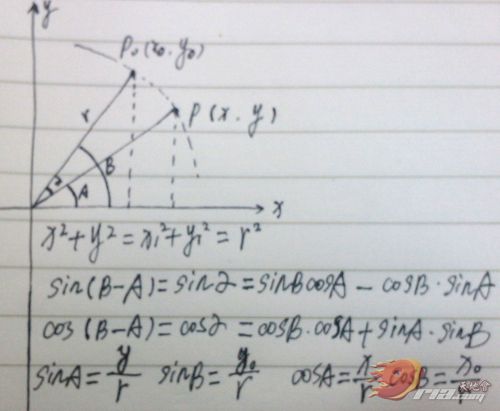 y
P₀(x₀.y₀)
P(x.y)
r
B
2
A
x
x²+y²=x₁²+y₁²=r²
sin(B-A)=sin2=sinBcosA-cosB·sinA
cos(B-A)=cos2=cosB·cosA+sinA·sinB
sinA=y/r sinB=y₀/r cosA=x/r cosB=x₀/r
天地會
Ria.com